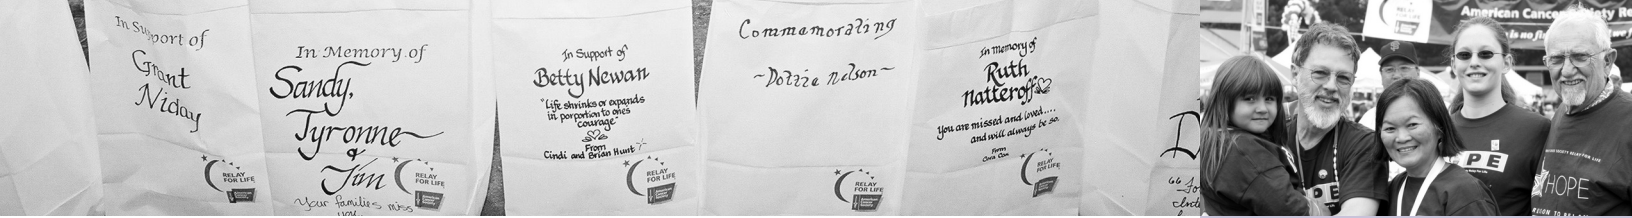 In Support of
Grant
Niday
RELAY
FOR LIFE
In Memory of
Sandy,
Tyronne
&
Jim
Your families miss
you
RELAY
FOR LIFE
In Support of
Betty Newan
"Life shrinks or expands
in porportion to ones
courage"
From
Cindi and Brian Hunt
RELAY
FOR LIFE
Commemorating
~Dottie Nelson~
RELAY
FOR LIFE
In memory of
Ruth
Natteroff
You are missed and loved....
and will always be so.
From
Cora Cox
RELAY
FOR LIFE
D
RELAY
FOR LIFE
American Cancer Society Re
is no fin
PE
PE
HOPE